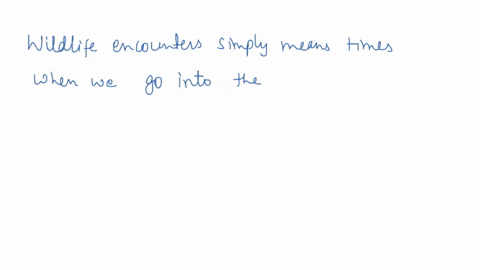 Wildlife encounters simply means times
when we go into the